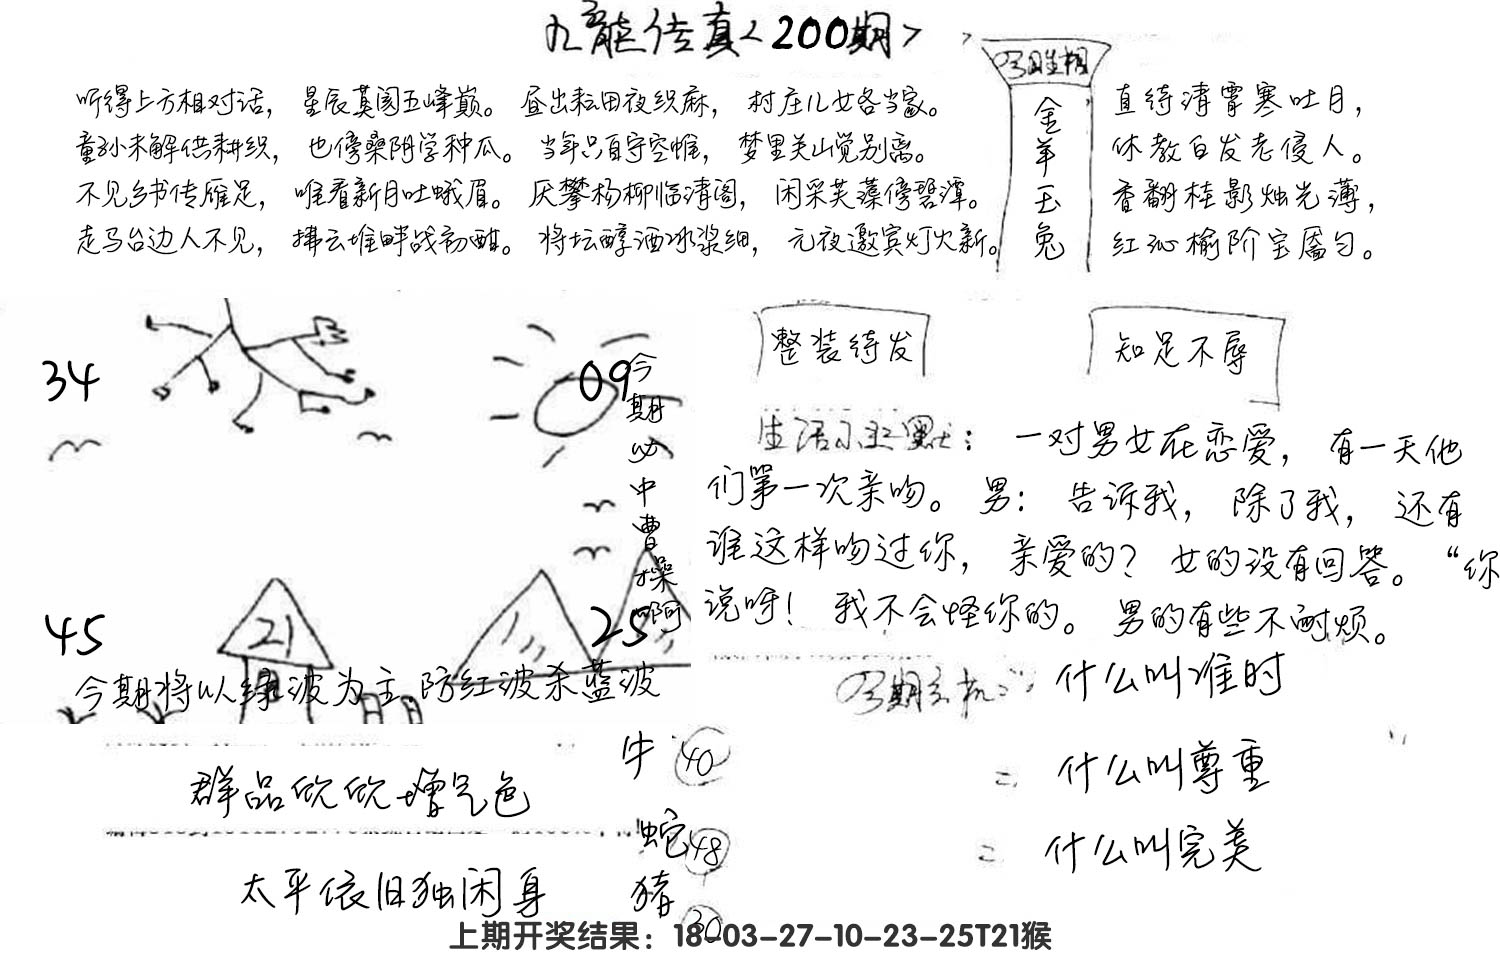 九龍传真<200期>
今期生相
金羊玉兔
听得上方相对话，星辰莫阂五峰巅。昼出耘田夜织麻，村庄儿女各当家。
童孙未解供耕织，也傍桑阴学种瓜。当年只自守空帷，梦里关山觉别离。
不见乡书传雁足，唯看新月吐蛾眉。厌攀杨柳临清阁，闲采芙蕖傍碧潭。
走马台边人不见，拂云堆畔战初酣。将坛醇酒冰浆细，元夜邀宾灯火新。
直待清霄寒吐月，
休教白发老侵人。
香翻桂影烛光薄，
红沁榆阶宝靥匀。
34
09
45
21
25
今期必中曹操啊
今期将以绿波为主防红波杀蓝波
整装待发
知足不辱
生活小幽默：一对男女在恋爱，有一天他
们第一次亲吻。男：告诉我，除了我，还有
谁这样吻过你，亲爱的？女的没有回答。“你
说呀！我不会怪你的。男的有些不耐烦。
今期玄机：什么叫准时
= 什么叫尊重
= 什么叫完美
群品欣欣增气色
太平依旧独闲身
牛 40
蛇 48
猪 30
上期开奖结果：18-03-27-10-23-25T21猴